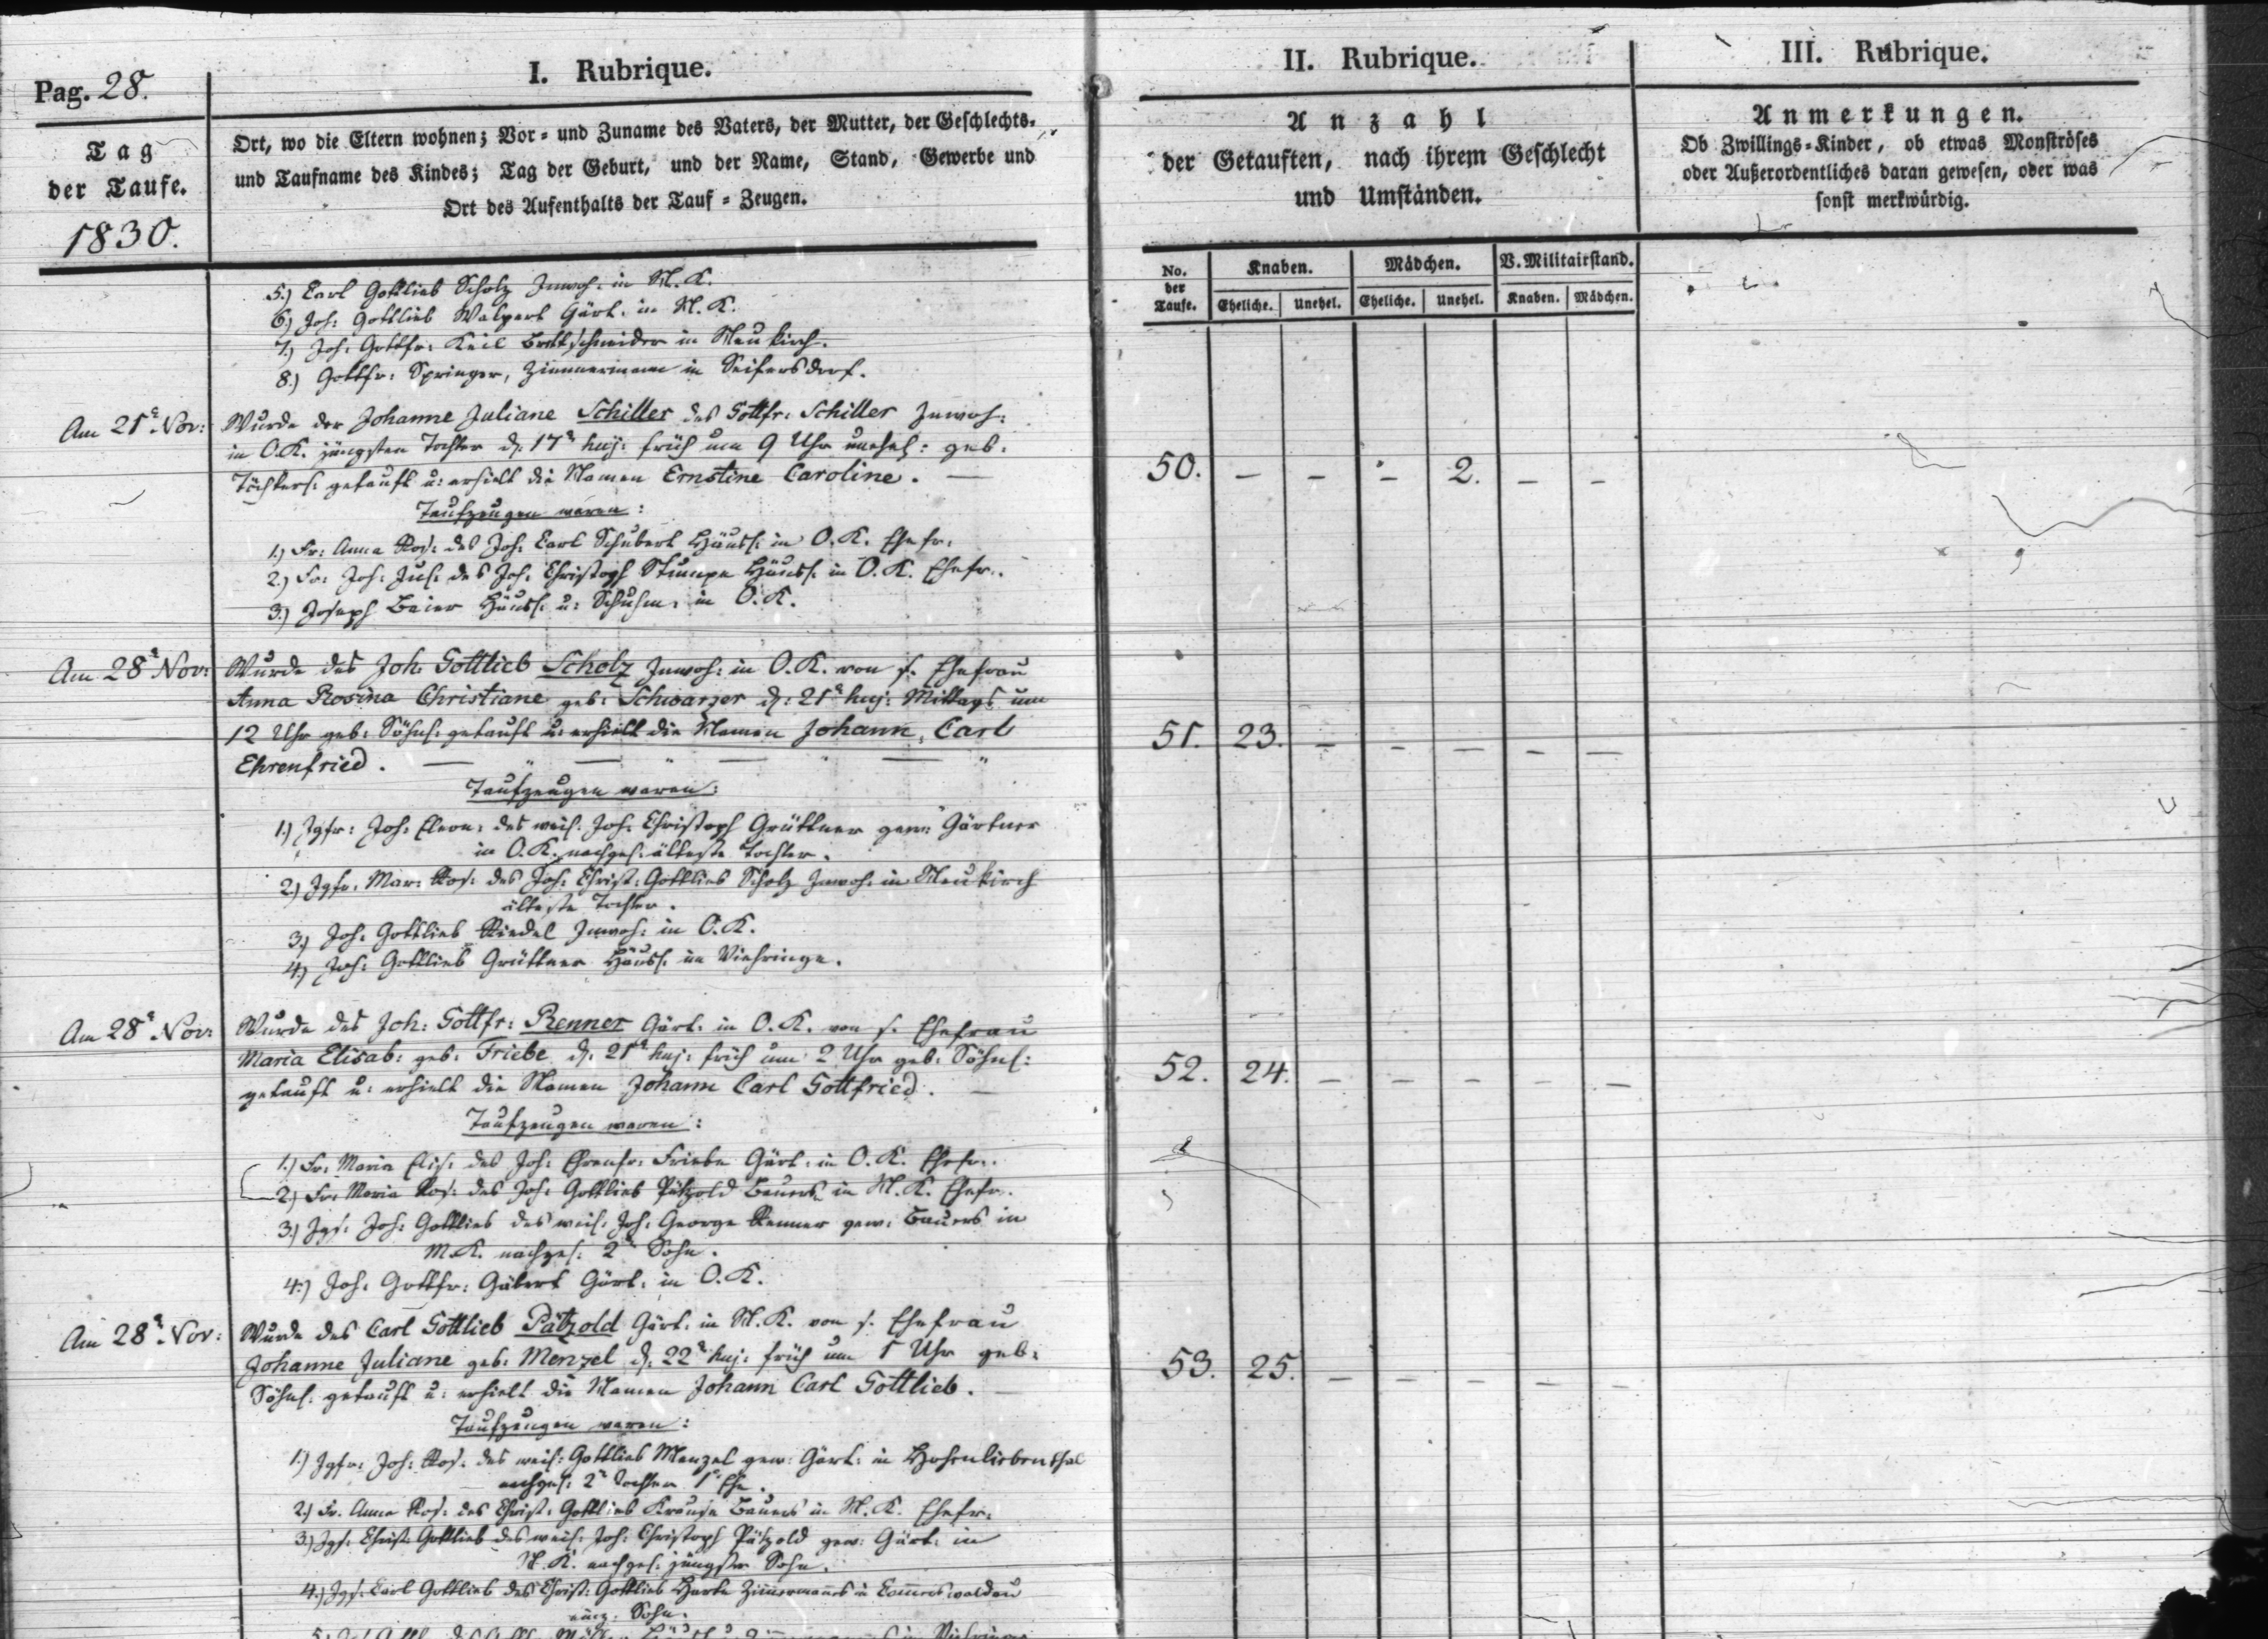 Pag. 28.
I. Rubrique.
II. Rubrique.
III. Rubrique.
Tag
der Taufe.
1830.
Ort, wo die Eltern wohnen; Vor- und Zuname des Vaters, der Mutter, der Geschlechts-
und Taufname des Kindes; Tag der Geburt, und der Name, Stand, Gewerbe und
Ort des Aufenthalts der Tauf-Zeugen.
Anzahl
der Getauften, nach ihrem Geschlecht
und Umständen.
Anmerkungen.
Ob Zwillings-Kinder, ob etwas Monströses
oder Außerordentliches daran gewesen, oder was
sonst merkwürdig.
No. der Taufe.
Knaben. Mädchen. V. Militairstand.
Eheliche. Unehel. Eheliche. Unehel. Knaben. Mädchen.
5.) Carl Gottlieb Scholz Inwoh: in N. K.
6.) Joh: Gottlieb Walpert Gärt: in N. K.
7.) Joh: Gottfr: Keil Brettschneider in Neukirch.
8.) Gottfr: Springer, Zimmermann in Seifersdorf.
Am 21n Nov: Wurde der Johanne Juliane Schiller des Gottfr: Schiller Inwoh:
in O.K. jüngsten Tochter d: 17n huj: früh um 9 Uhr unehel: geb:
Töchterl: getauft u: erhielt die Namen Ernstine Caroline. —
50. — — — 2. — —
Taufzeugen waren:
1.) Fr: Anna Ros: des Joh: Carl Schubert Häusl: in O. K. Ehefr:
2.) Fr: Joh: Jul: des Joh: Christoph Stumpe Häusl: in O. K. Ehefr:
3.) Joseph Beier Häusl: u: Schuhm: in O. K.
Am 28n Nov: Wurde des Joh: Gottlieb Scholz Inwoh: in O.K. von s. Ehefrau
Anna Rosina Christiane geb: Schwarzer d: 21n huj: Mittags um
12 Uhr geb: Söhnl: getauft u: erhielt die Namen Johann Carl
Ehrenfried.
51. 23. — — — — —
Taufzeugen waren:
1.) Jgfr: Joh: Eleon: des weil: Joh: Christoph Grüttner gew: Gärtner
in O. K. nachgel: älteste Tochter.
2.) Jgfr: Mar: Ros: des Joh: Christ: Gottlieb Scholz Inwoh: in Neukirch
älteste Tochter.
3.) Joh: Gottlieb Riedel Inwoh: in O.K.
4.) Joh: Gottlieb Grüttner Häusl: in Viehringe.
Am 28n Nov: Wurde des Joh: Gottfr: Renner Gärt: in O. K. von s. Ehefrau
Maria Elisab: geb: Friebe d: 21n huj: früh um 2 Uhr geb: Söhnl:
getauft u: erhielt die Namen Johann Carl Gottfried. —
52. 24. — — — — —
Taufzeugen waren:
1.) Fr: Maria Elis: des Joh: Ehrenfr: Friebe Gärt: in O. K. Ehefr:
2.) Fr: Maria Ros: des Joh: Gottlieb Pätzold Bauers in N. K. Ehefr:
3.) Jgs: Joh: Gottlieb des weil: Joh: George Renner gew: Bauers in
M.K. nachgel: 2r Sohn.
4.) Joh: Gottfr: Gäbert Gärt: in O. K.
Am 28n Nov: Wurde des Carl Gottlieb Pätzold Gärt: in N. K. von s. Ehefrau
Johanne Juliane geb: Menzel d: 22n huj: früh um 1 Uhr geb:
Söhnl: getauft u: erhielt die Namen Johann Carl Gottlieb. —
53. 25. — — — — —
Taufzeugen waren:
1.) Jgfr: Joh: Ros: des weil: Gottlieb Menzel gew: Gärt: in Hohenliebenthal
nachgel: 2e Tochter 1r Ehe.
2.) Fr: Anna Ros: des Christ: Gottlieb Krause Bauers in N. K. Ehefr:
3.) Jgs: Christ: Gottlieb des weil: Joh: Christoph Pätzold gew: Gärt: in
N. K. nachgel: jüngster Sohn.
4.) Jgs: Carl Gottlieb des Christ: Gottlieb Zimmermanns in
einz: Sohn.